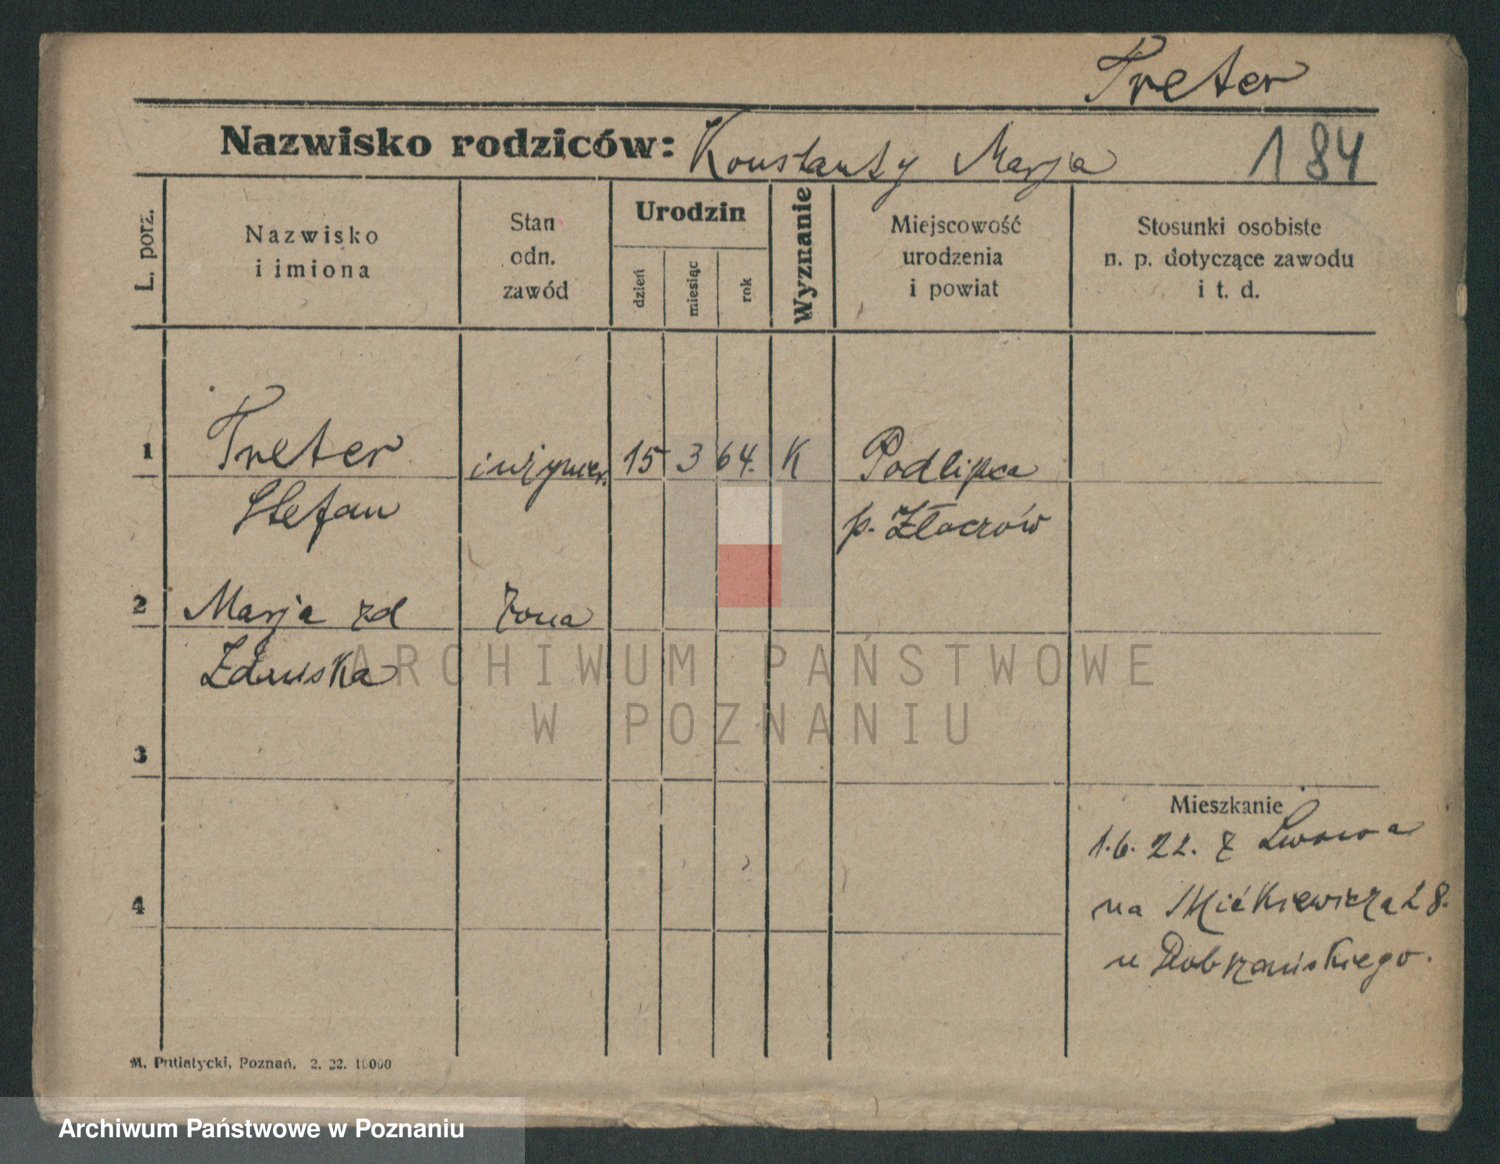 Treter
Nazwisko rodziców: Konstanty Marja 184
L. porz.
Nazwisko
i imiona
Stan
odn.
zawód
Urodzin
dzień
miesiąc
rok
Wyznanie
Miejscowość
urodzenia
i powiat
Stosunki osobiste
n. p. dotyczące zawodu
i t. d.
1 Treter inżynier. 15 3 64. K Podlipca
Stefan p. Złoczów
2 Marja zd żona
Zduńska
ARCHIWUM PAŃSTWOWE
W POZNANIU
3
Mieszkanie
1.6.22. z Lwowa
4
na Mickiewicza 28.
u Dobrzańskiego.
M. Putiatycki, Poznań. 2. 22. 10000
Archiwum Państwowe w Poznaniu